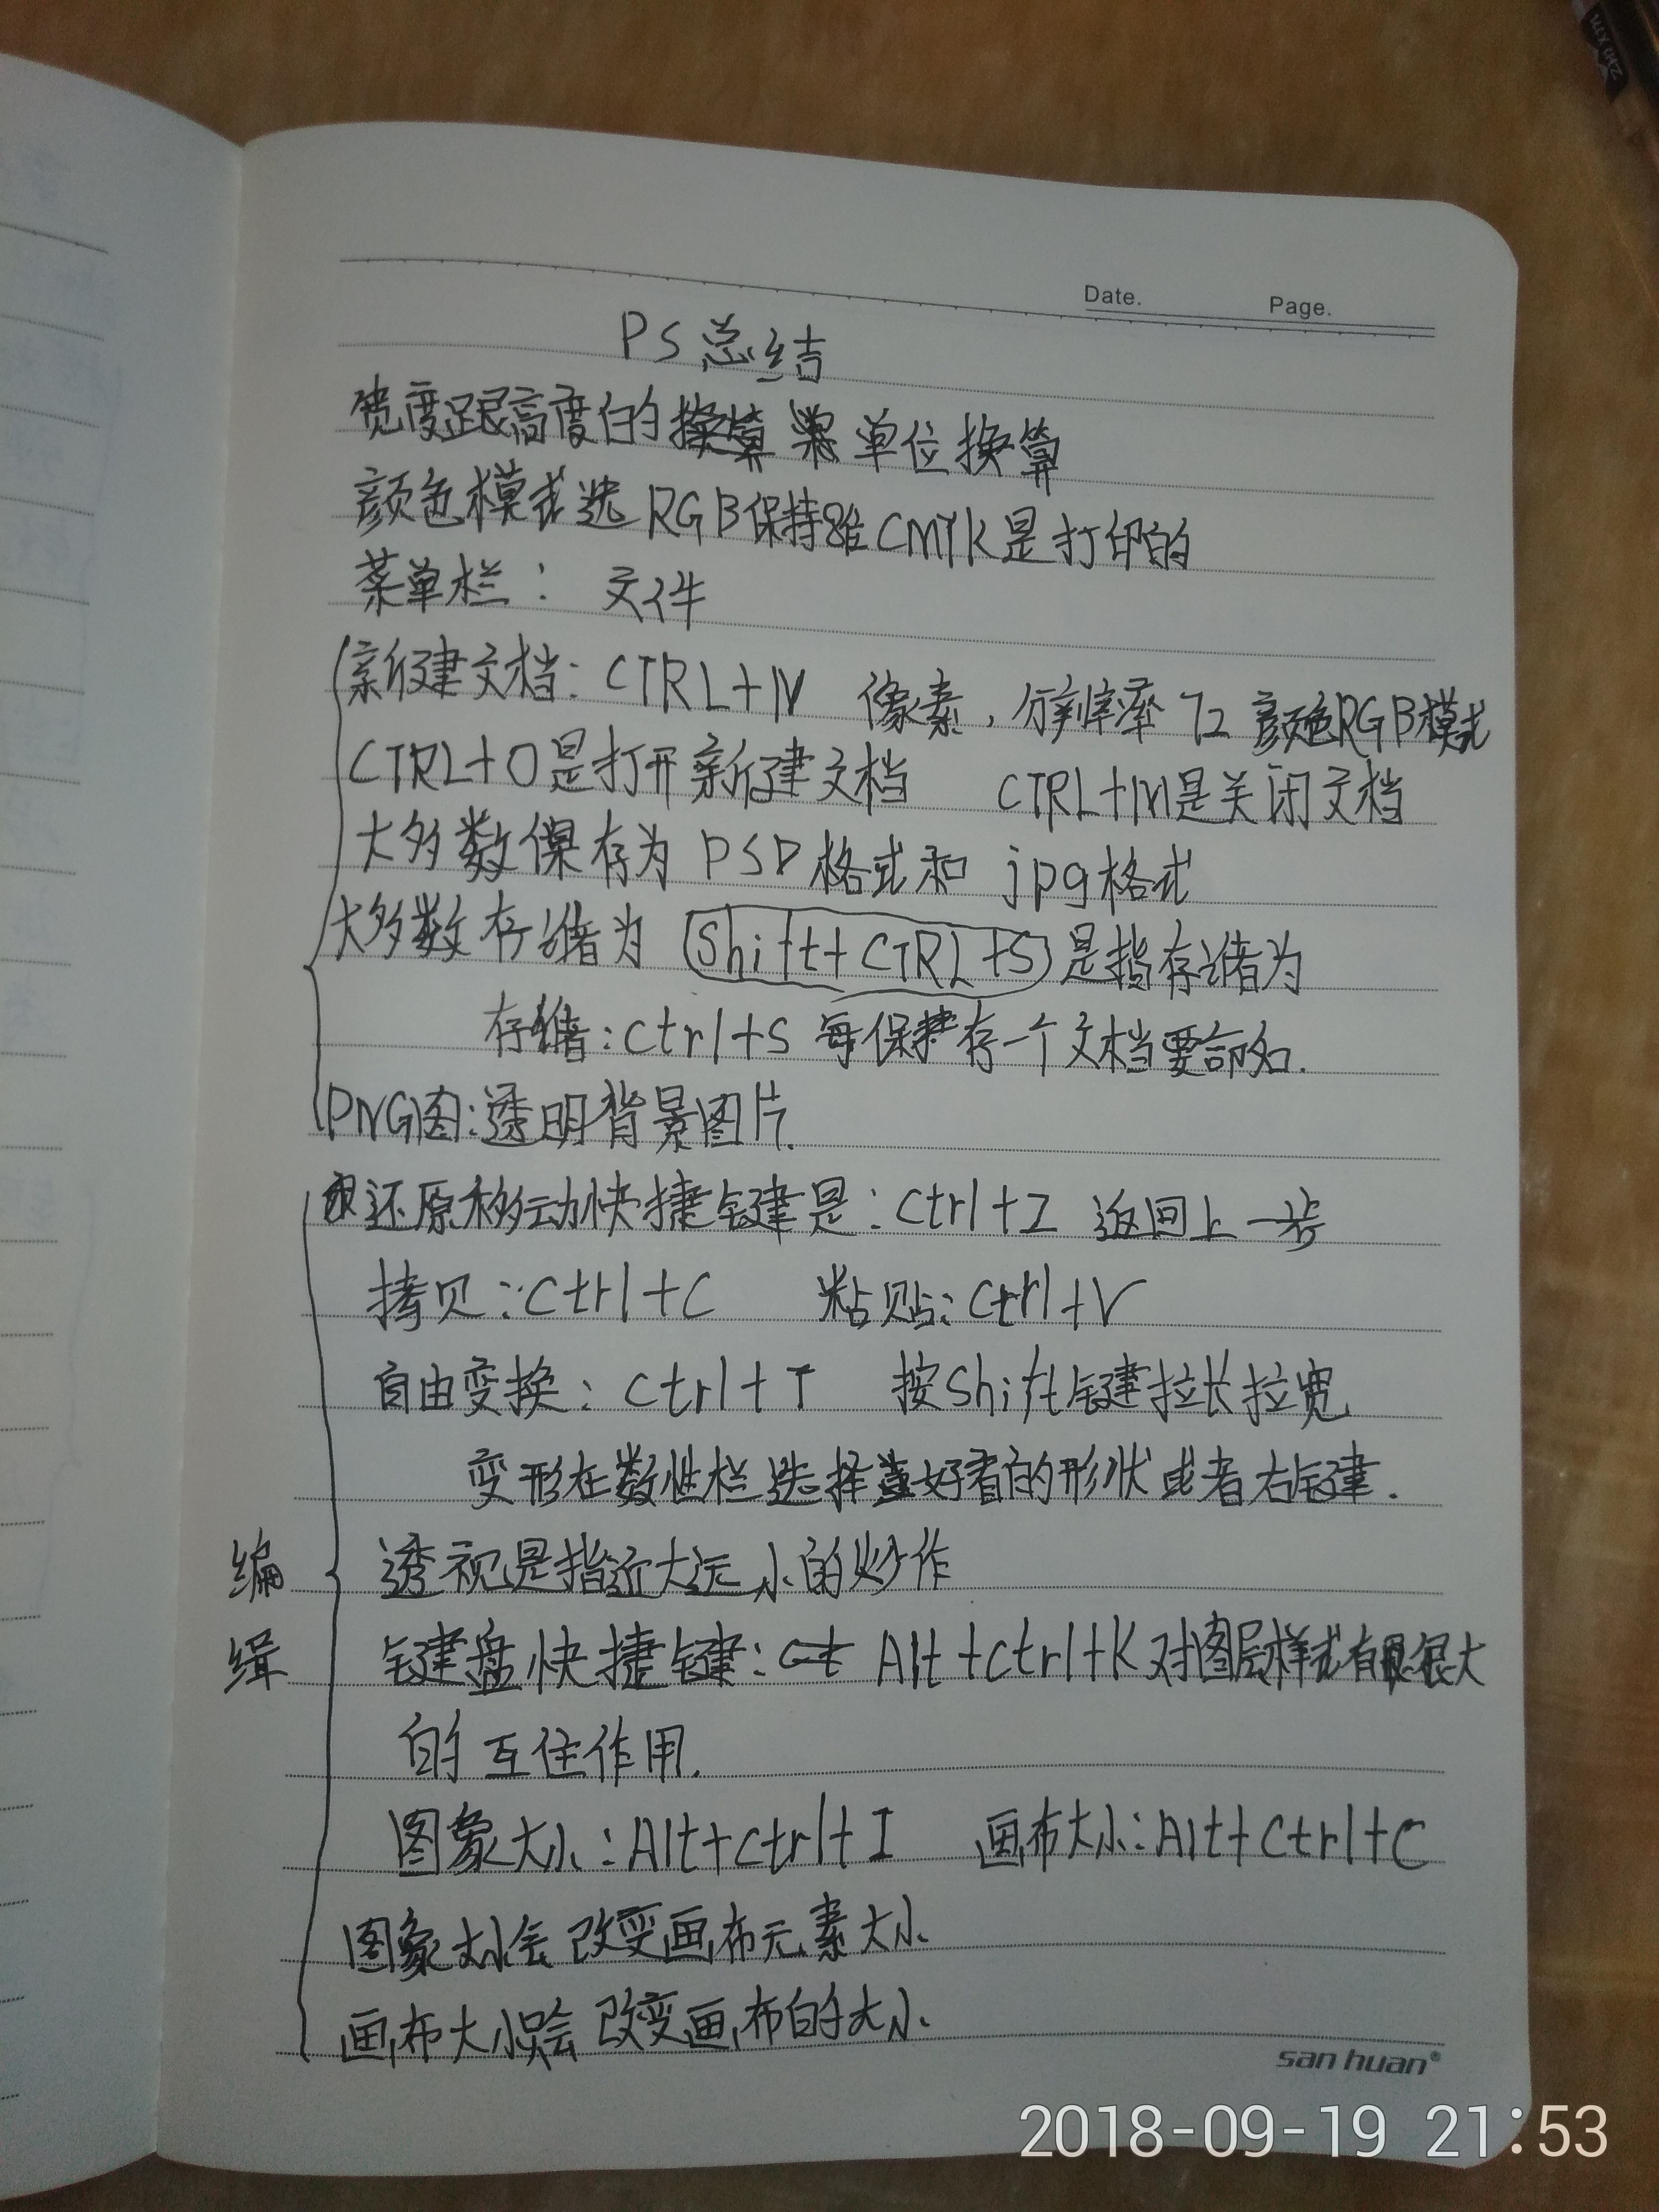 Date. Page.
PS总结
宽度跟高度的换算 单位换算
颜色模式选RGB保持 CMYK是打印的
菜单栏: 文件
新建文档: CTRL+N 像素,分辨率72 颜色RGB模式
CTRL+O是打开新建文档 CTRL+W是关闭文档
大多数保存为 PSD格式和 jpg格式
大多数存储为 Shift+CTRL+S 是指存储为
存储:ctrl+S 每保存一个文档要命名.
PNG图:透明背景图片.
还原移动快捷键是:ctrl+Z 返回上一步
拷贝:ctrl+C 粘贴:ctrl+V
自由变换:ctrl+T 按Shift键拉长拉宽
变形在数性栏选择好看的形状或者右键.
透视是指近大远小的炒作
编
辑
键盘快捷键: Alt+ctrl+K对图层样式有很大
的互住作用.
图象大小:Alt+ctrl+I 画布大小:Alt+Ctrl+C
图象大小会改变画布元素大小
画布大小只会改变画布的大小
san huan®
2018-09-19 21:53